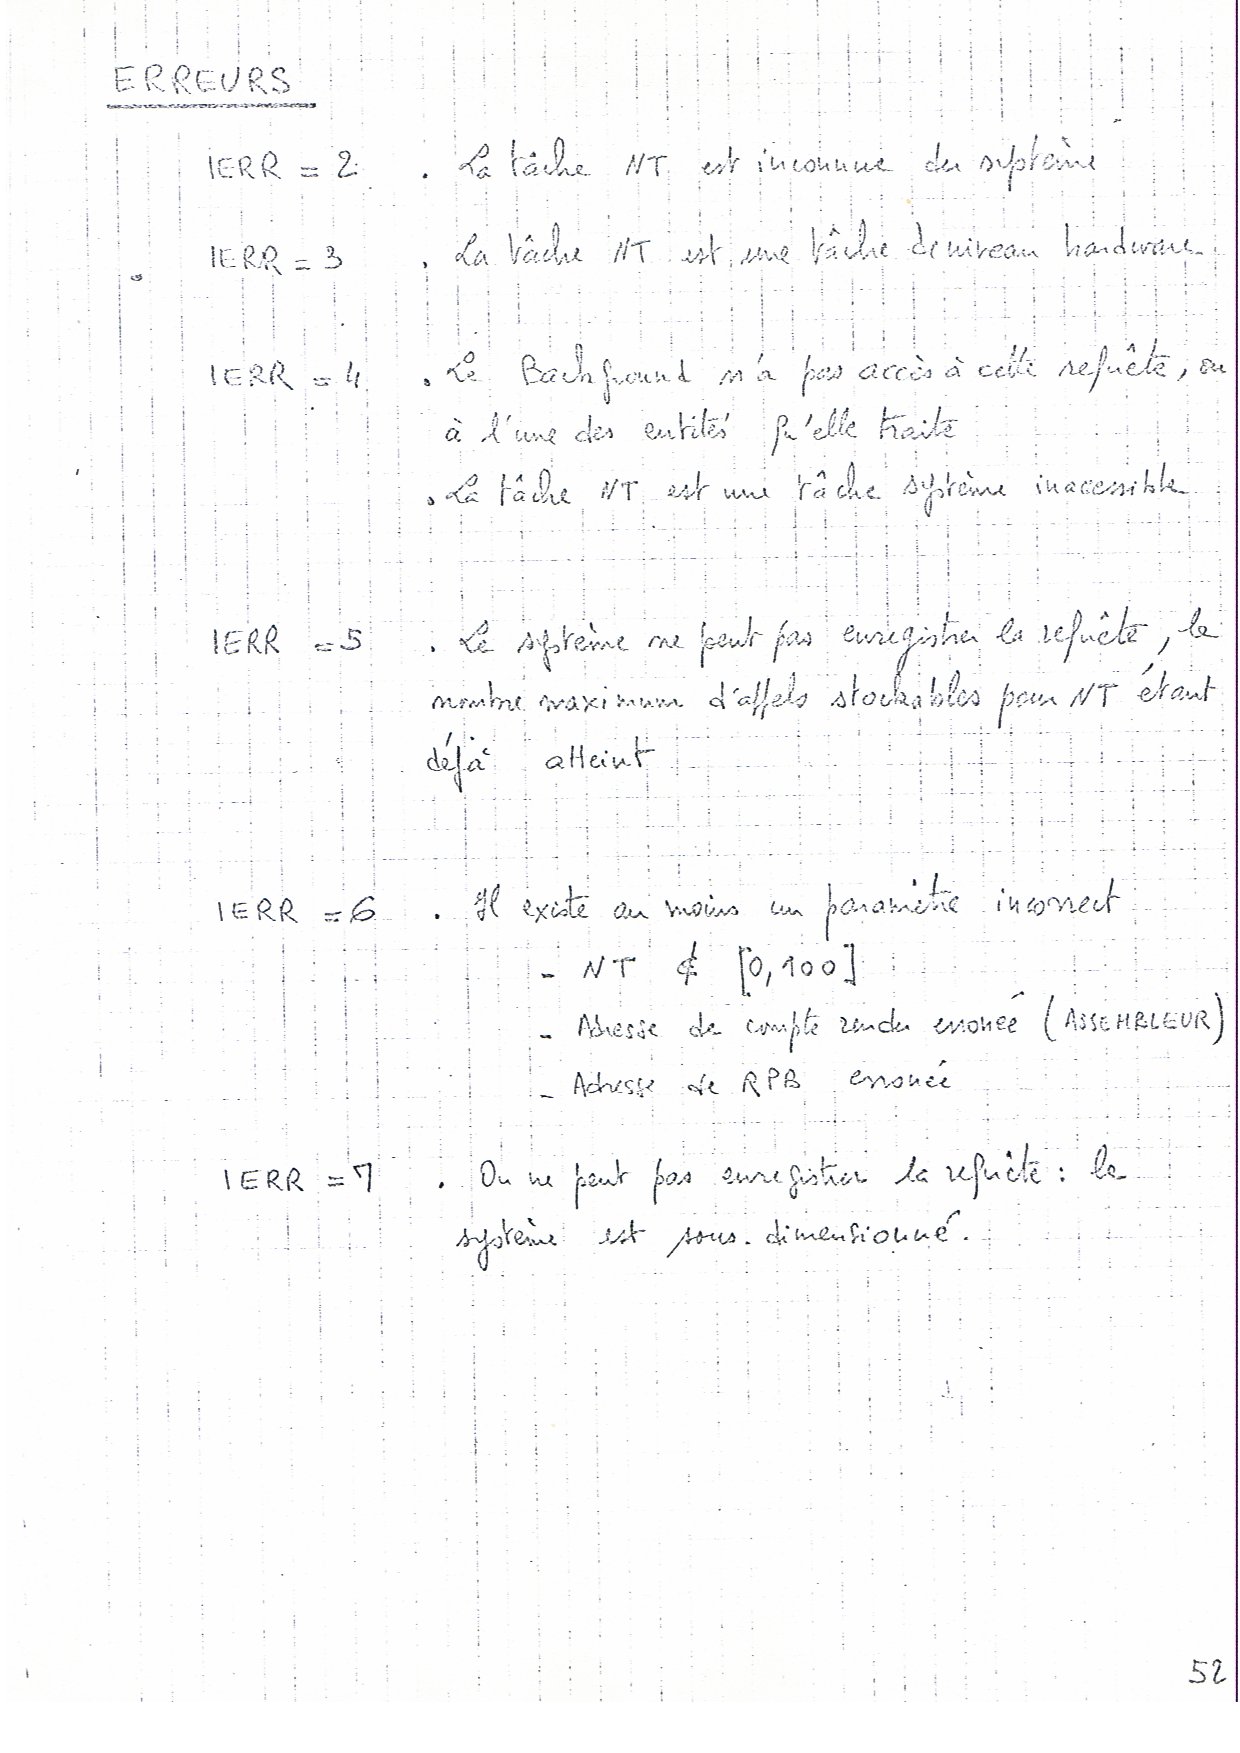 ERREURS
IERR = 2 . La tâche NT est inconnue du système
IERR = 3 . La tâche NT est une tâche de niveau hardware
IERR = 4 . Le Background n'a pas accès à cette requête, ou
à l'une des entités qu'elle traite
. La tâche NT est une tâche système inaccessible
IERR = 5 . Le système ne peut pas enregistrer la requête, le
nombre maximum d'appels stockables pour NT étant
déjà atteint
IERR = 6 . Il existe au moins un paramètre incorrect
- NT ∉ [0,100]
- Adresse de compte rendu erronée (ASSEMBLEUR)
- Adresse de RPB erronée
IERR = 7 . On ne peut pas enregistrer la requête : le
système est sous-dimensionné.
52